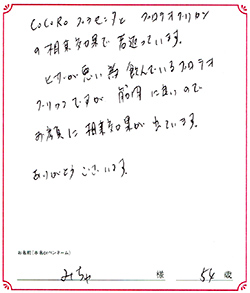 CoCoRo プラセンタと プロテオグリカン
の相乗効果で 若返っています。
ヒザが悪い為 飲んでいるプロテオ
グリカンですが 筋肉に良いので
お顔に 相乗効果が 出ています。
ありがとう ございます。
お名前(本名orペンネーム)
みちゃ 様 54 歳